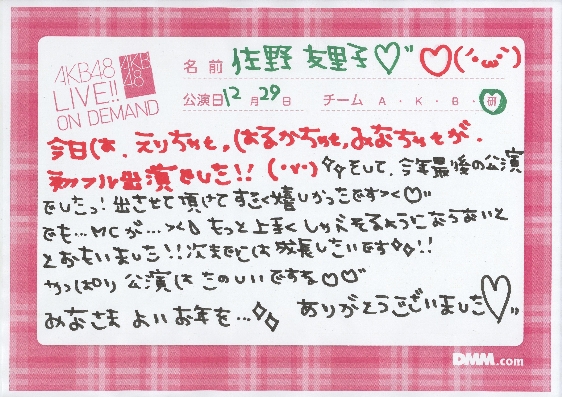 AKB48
LIVE!!
ON DEMAND
AKB
48
名前 佐野 友里子♡" ♡(´･ω･`)
公演日 12月29日 チーム A・K・B・研
今日は、えりちゃん,はるかちゃん,みなちゃんが、
初フル出演でした!! (･∀･) そして、今年最後の公演
でしたっ!出させて頂けてすごく嬉しかったです><♡"
でも…MCが…>< もっと上手くしゃべれるようになりたいと
とおもいました!!次までには成長したいです!!
やっぱり公演はたのしいですね♡♡
みなさま よいお年を… ありがとうございました♡"
DMM.com